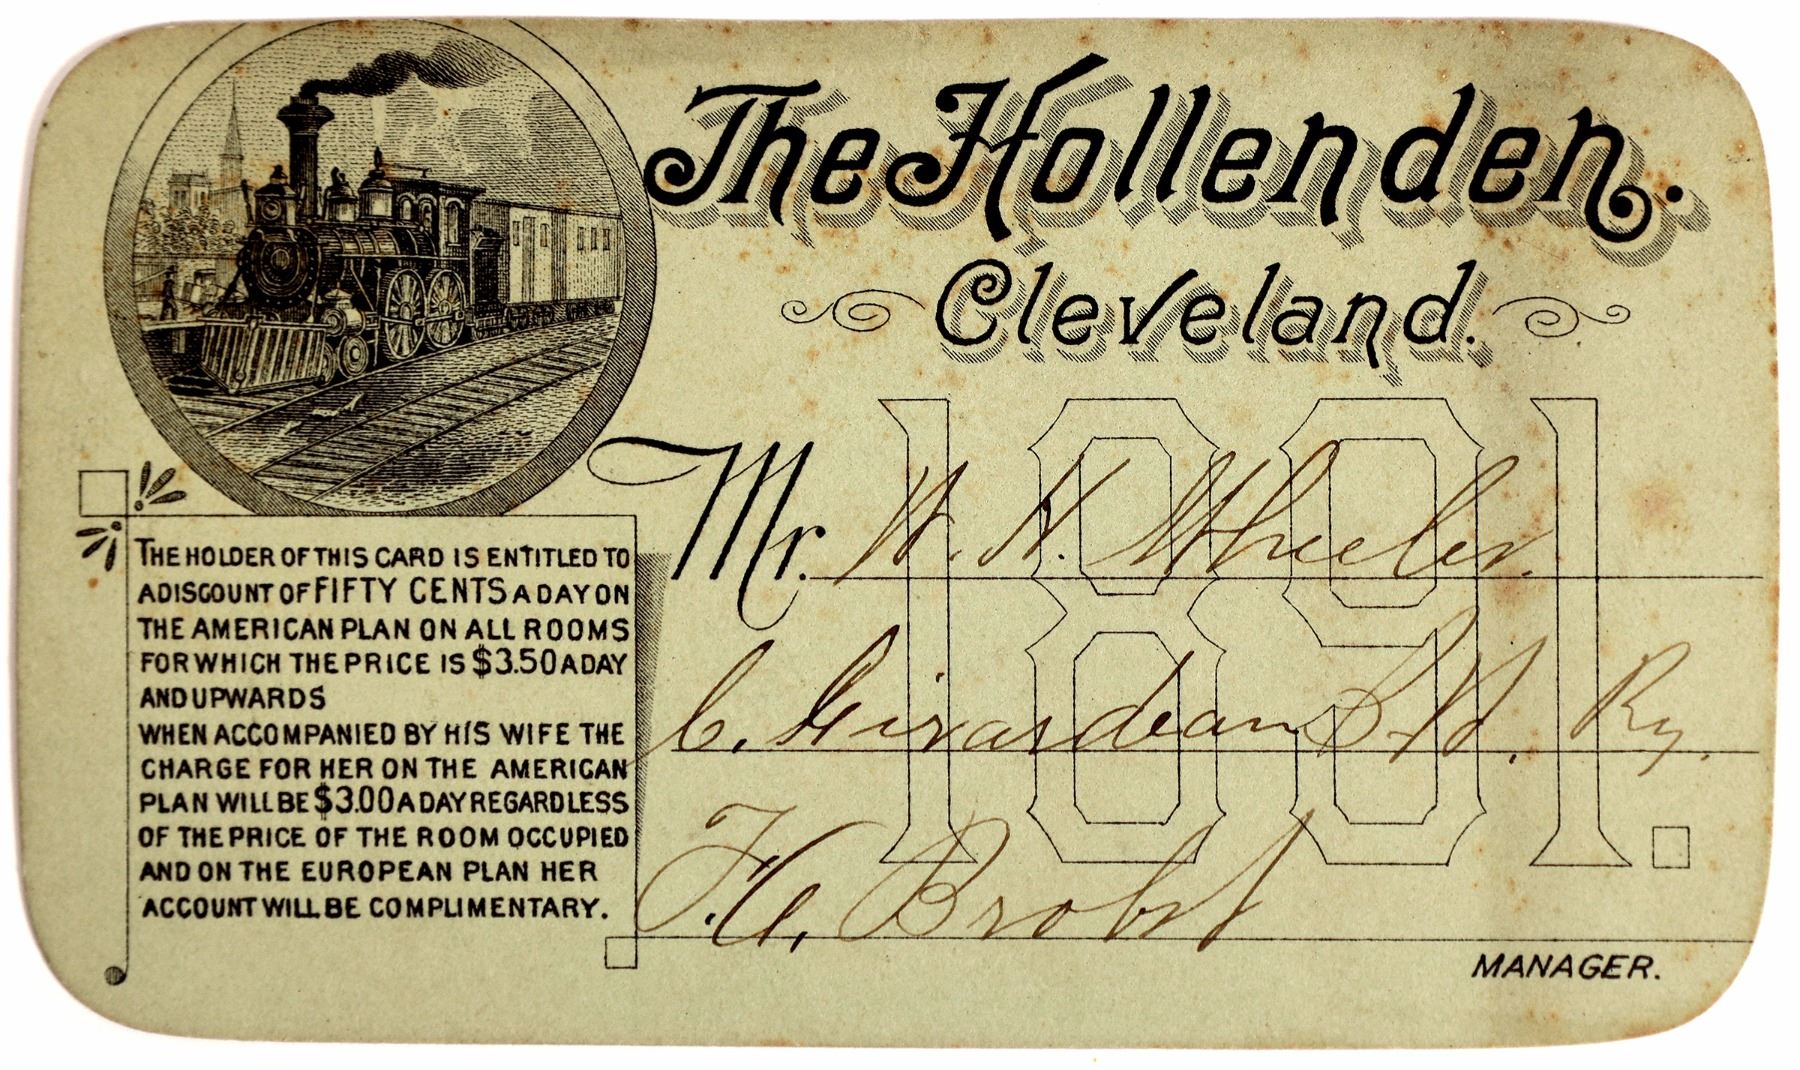 The Hollenden.
Cleveland.
1891.
Mr. W. H. Wheeler.
C. Girardeau S. W. Ry.
F. A. Brobst
MANAGER.
THE HOLDER OF THIS CARD IS ENTITLED TO
A DISCOUNT OF FIFTY CENTS A DAY ON
THE AMERICAN PLAN ON ALL ROOMS
FOR WHICH THE PRICE IS $3.50 A DAY
AND UPWARDS
WHEN ACCOMPANIED BY HIS WIFE THE
CHARGE FOR HER ON THE AMERICAN
PLAN WILL BE $3.00 A DAY REGARDLESS
OF THE PRICE OF THE ROOM OCCUPIED
AND ON THE EUROPEAN PLAN HER
ACCOUNT WILL BE COMPLIMENTARY.